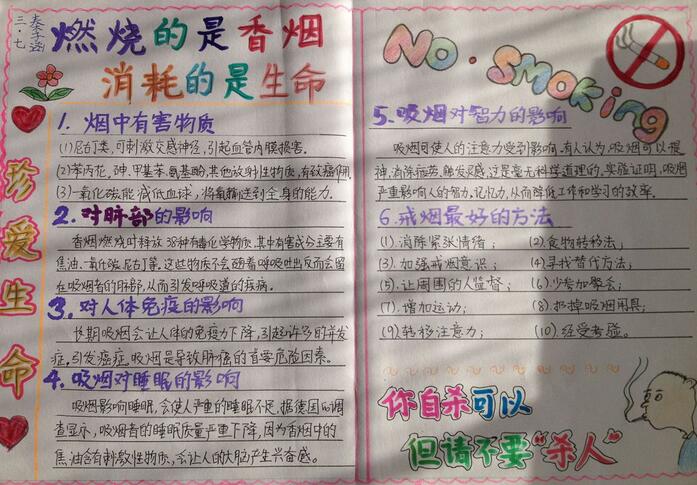 三.七
秦子涵
燃烧的是香烟
消耗的是生命
珍爱生命
1. 烟中有害物质
(1)尼古丁类,可刺激交感神经,引起血管内膜损害。
(2)苯丙花,砷,甲基苯,氨基酚,其他放射性物质,有致癌作用。
(3)一氧化碳能减低血球,将氧输送到全身的能力。
2. 对肺部的影响
香烟燃烧时释放38种有毒化学物质,其中有害成分主要有
焦油、一氧化碳、尼古丁等。这些物质不会随着呼吸吐出反而会留
在吸烟者的肺部,从而引发呼吸道的疾病。
3. 对人体免疫的影响
长期吸烟会让人体的免疫力下降,引起许多的并发
症,引发癌症。吸烟是导致肺癌的首要危险因素。
4. 吸烟对睡眠的影响
吸烟影响睡眠,会使人严重的睡眠不足,据德国的调
查显示,吸烟者的睡眠质量严重下降,因为香烟中的
焦油含有刺激性物质,会让人的大脑产生兴奋感。
NO.SMOKing
5. 吸烟对智力的影响
吸烟可使人的注意力受到影响,有人认为,吸烟可以提
神,消除疲劳,触发灵感,这是毫无科学道理的。实验证明,吸烟
严重影响人的智力,记忆力,从而降低工作和学习的效率。
6. 戒烟最好的方法
(1).消除紧张情绪; (2).食物转移法;
(3).加强戒烟意识; (4).寻找替代方法;
(5).让周围的人监督; (6).少参加聚会;
(7).增加运动; (8).扔掉吸烟用具;
(9).转移注意力; (10).经受考验。
你自杀可以
但请不要“杀人”